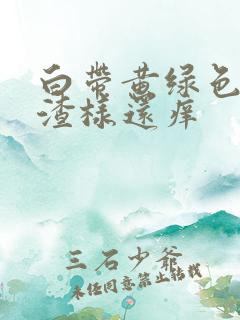 白带黄绿色
渣样还痒
三石少爷
未经同意禁止转载